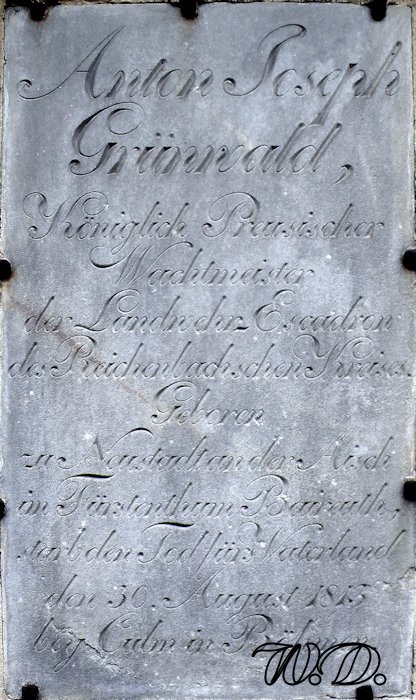 Anton Joseph
Grünwald,
Königlich Preusischer
Wachtmeister
der Landwehr-Escadron
des Reichenbachschen Kreises.
Geboren
zu Neustadt an der Aisch
im Fürstenthum Baireuth,
starb den Tod fürs Vaterland
den 30. August 1813
bey Culm in Böhmen
W.D.